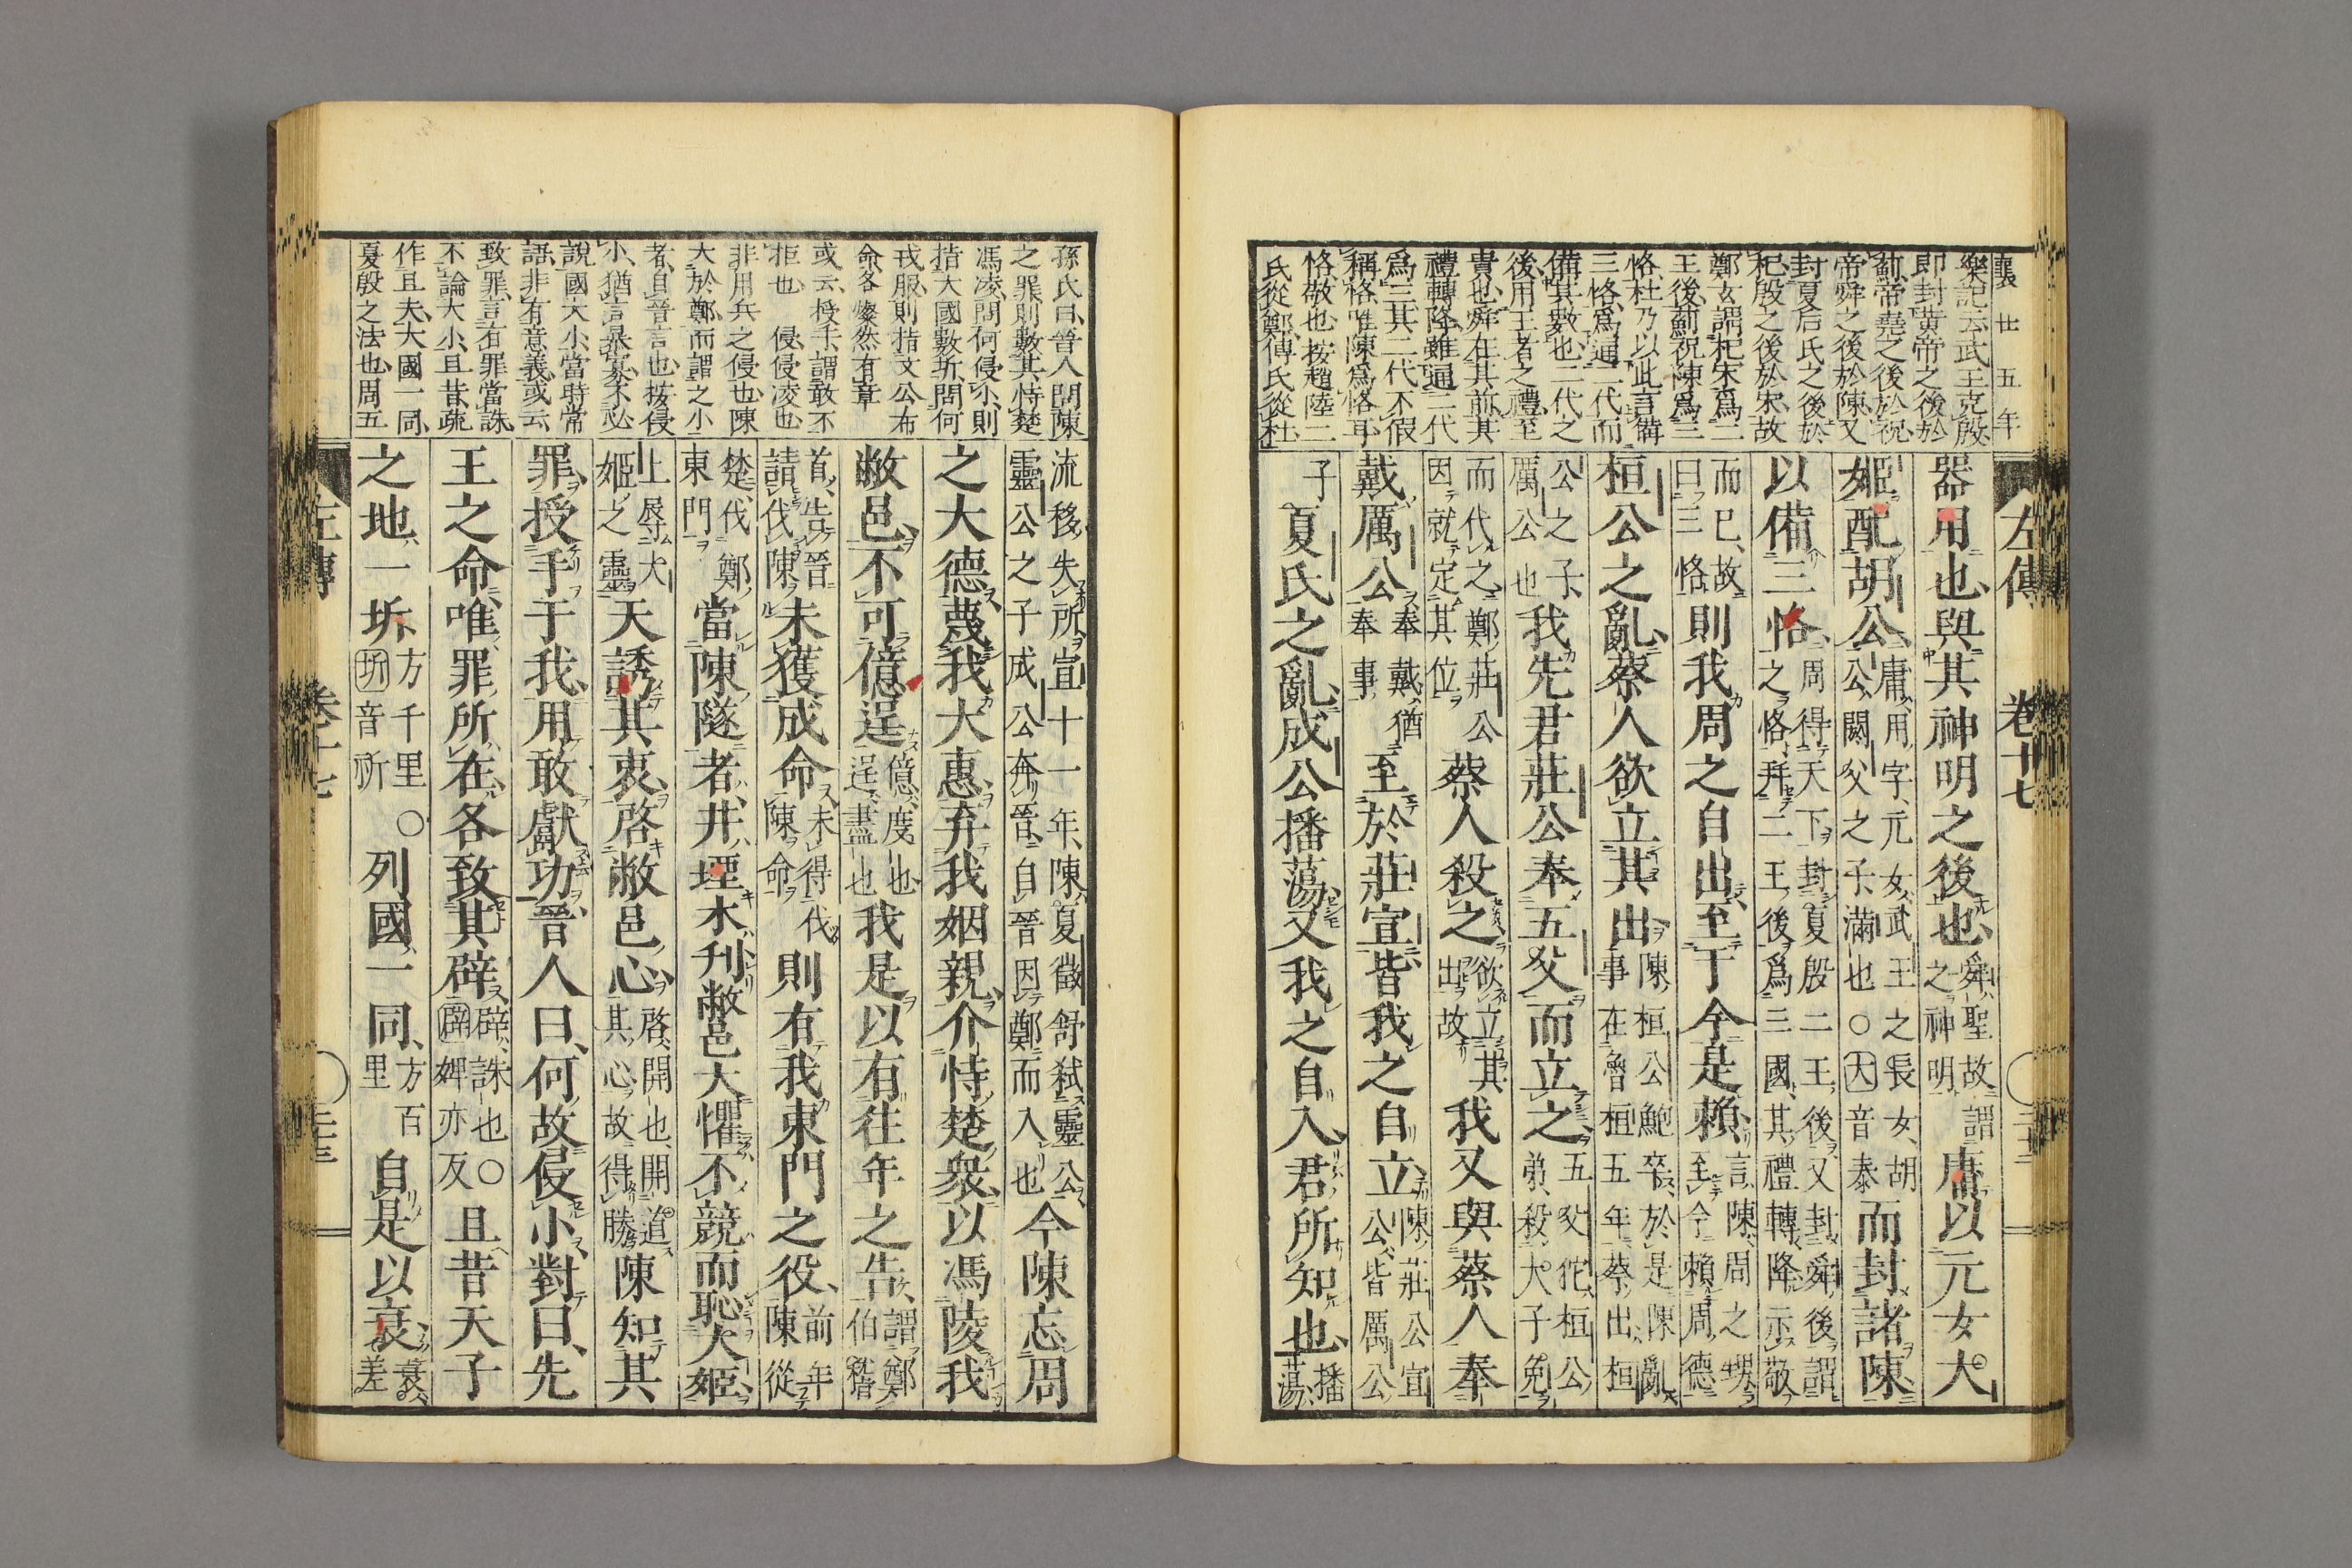 襄廿五年
樂記云武王克殷
即封黄帝之後於
薊帝堯之後於祝
帝舜之後於陳又
封夏后氏之後於
杞殷之後於宋故
鄭玄謂杞宋爲二
王後薊祝陳爲三
恪杜乃以此言備
三恪爲通二代而
備其數也二代之
後用王者之禮至
貴也舜在其前其
禮轉降雖通二代
爲三其二代不假
稱恪唯陳爲恪耳
恪敬也按趙陸二
氏從鄭傳氏從杜
左傳 卷十七
器用也與其神明之後也舜聖故謂之神明庸以元女大
姬配胡公庸用字元女武王之長女胡公閼父之子滿也○大音泰而封諸陳
以備三恪周得天下封夏殷二王後又封舜後謂之恪幷二王後爲三國其禮轉降示敬
而已故曰三恪則我周之自出至于今是賴言陳周之甥至今賴周德
桓公之亂蔡人欲立其出陳桓公鮑卒於是陳亂事在魯桓五年蔡出桓
公之子厲公也我先君莊公奉五父而立之五父佗桓公弟殺大子免
而代之鄭莊公因就定其位蔡人殺之欲立其出故我又與蔡人奉
戴厲公奉戴猶奉事至於莊宣皆我之自立陳莊公宣公皆厲公
子夏氏之亂成公播蕩又我之自入君所知也播蕩
孫氏曰晉人問陳
之罪則數其恃楚
馮凌問何侵小則
指大國數圻問何
戎服則指文公布
命各燦然有章
或云授手謂敢不
拒也 侵侵凌也
非用兵之侵也陳
大於鄭而謂之小
者自晉言也按侵
小猶言暴寡不必
說國大小當時常
語非有意義或云
致罪言有罪當誅
不論大小且昔疏
作且夫大國一同
夏殷之法也周五
流移失所宜十一年陳夏徵舒弑靈公
靈公之子成公奔晉自晉因鄭而入也今陳忘周
之大德蔑我大惠弃我姻親介恃楚衆以馮陵我
敝邑不可億逞億度也逞盡也我是以有往年之告謂鄭伯稽
首告晉請伐陳未獲成命未得伐陳命則有我東門之役前年陳從
楚伐鄭東門當陳隧者井堙木刋敝邑大懼不競而恥大姬
上辱大姬之靈天誘其衷啓敝邑心啓開也開道其心故得勝陳知其
罪授手于我用敢獻功晉人曰何故侵小對曰先
王之命唯罪所在各致其辟辟誅也○辟婢亦反且昔天子
之地一圻方千里○圻音祈列國一同方百里自是以衰衰差
左傳 卷十七